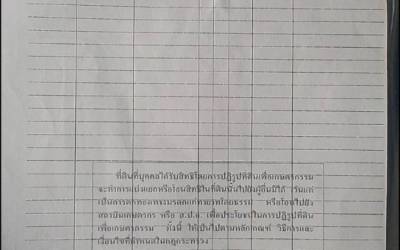 ที่ดินที่บุคคลได้รับสิทธิโดยการปฏิรูปที่ดินเพื่อเกษตรกรรม
จะทำการแบ่งแยกหรือโอนสิทธิในที่ดินนั้นไปยังผู้อื่นมิได้ เว้นแต่
เป็นการตกทอดทางมรดกแก่ทายาทโดยธรรม หรือโอนไปยัง
สถาบันเกษตรกร หรือ ส.ป.ก. เพื่อประโยชน์ในการปฏิรูปที่ดิน
เพื่อเกษตรกรรม ทั้งนี้ ให้เป็นไปตามหลักเกณฑ์ วิธีการและ
เงื่อนไขที่กำหนดในกฎกระทรวง